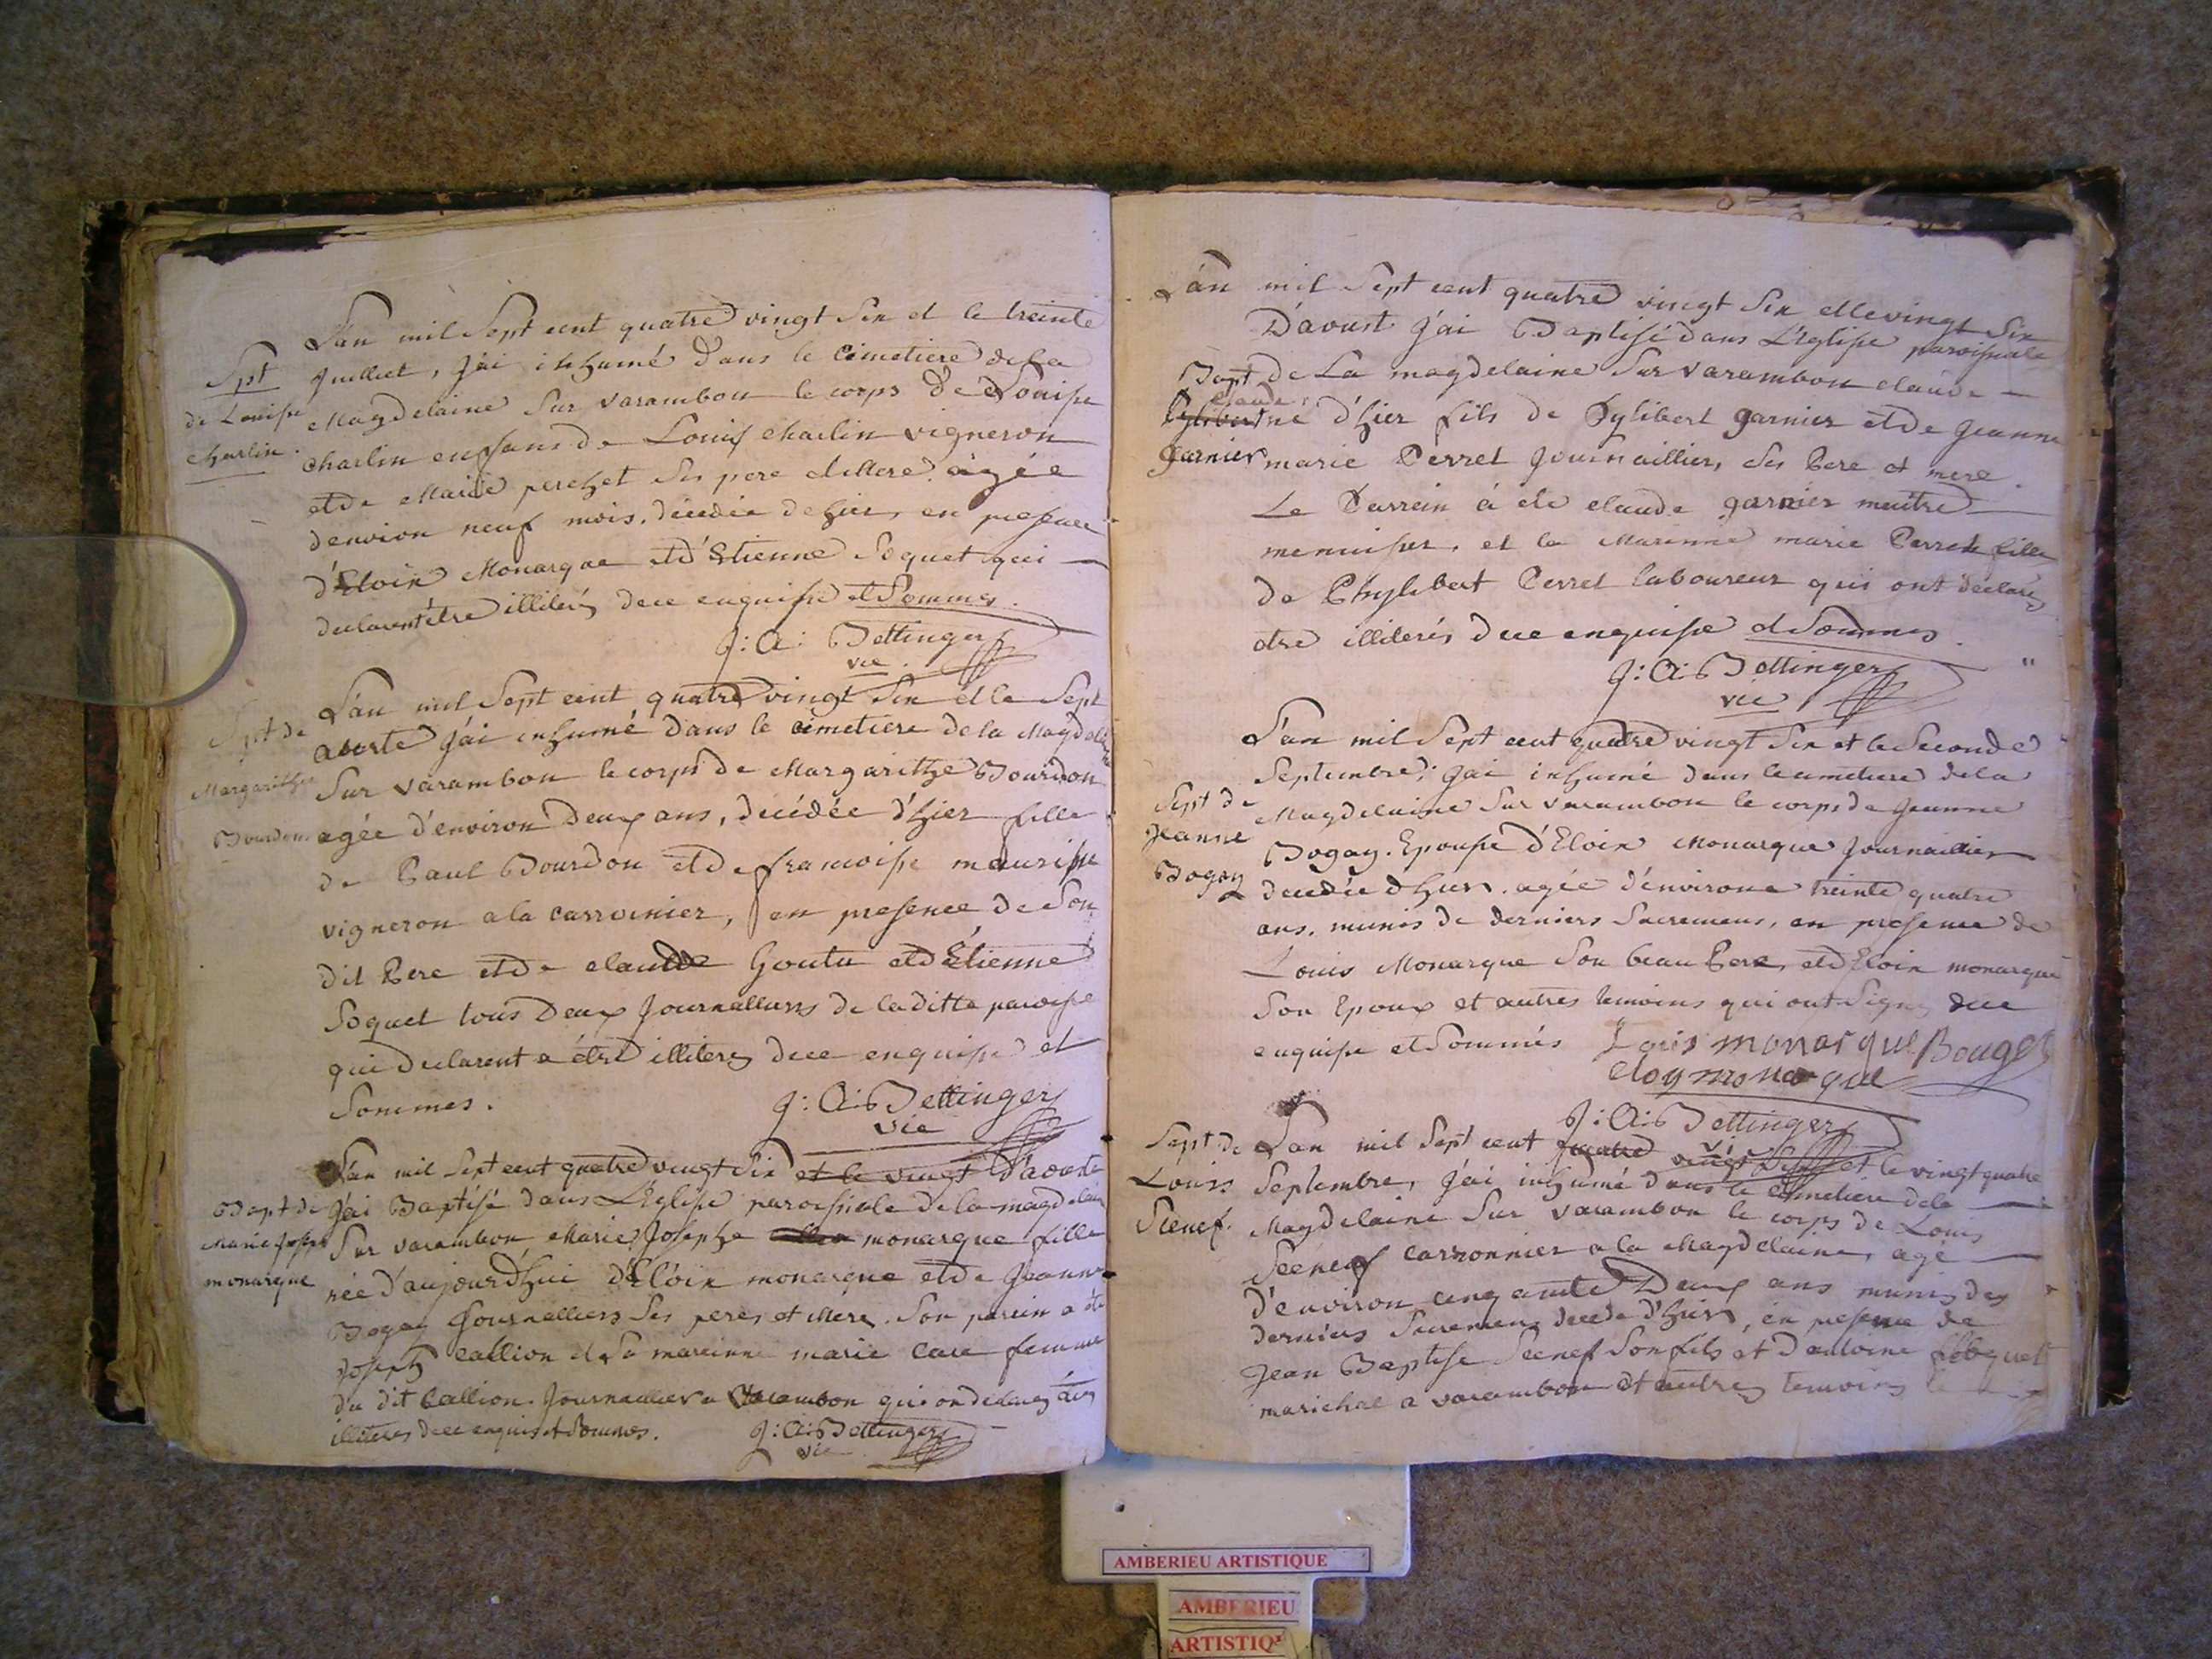 L'an mil Sept cent quatre vingt Six et le treinte
Spt
Juilliet, j'ai inhumé dans le Cimetiere de la
de Louise
Magdelaine Sur varambon le corps de Louise
Charlin.
Charlin enfans de Louis Charlin vigneron
et de Marie perchet Ses pere et Mere. agée
d'envion neuf mois. décedée de hier, en presence
d'Eloix Monarque et d'Etienne Soquet qui
declarent étre illiterés de ce enquise et Sommes.
J: A: Bettinger
vic.
L'an mil Sept cent quatre vingt Six et le Sept
Spt de
aouste j'ai inhumé dans le cimetiere de la Magdelaine
Margarithe
Sur varambon le corps de Margarithe Bourdon
Bourdon
agée d'environ Deux ans, decédée d'hier fille
de Paul Bourdon et de francoise maurisse
vigneron a la carronier, en presence de Son
dit Pere et de claude Goutu et d'Etienne
Soquet tous Deux Journalliers de la ditte paroisse
qui declarent a étre illiterés de ce enquise et
Sommes.
J: A: Bettinger
vic
L'an mil Sept cent quatre vingt Six et le vingt d'aouste
Bapt de
j'ai Baptisé dans L'Eglise paroissiale de la magdelaine
Marie Josephe
Sur varambon Marie Josephe monarque fille
monarque
née d'aujourdhui d'Eloix monarque et de Jeanne
Bogay Journalliers Ses peres et Mere. Son parein a été
Joseph Callion et Sa mareinne marie Care femme
du dit Callion. Journallier a Varambon qui on declarez
illiteres de ce enquis et Sommes.
J: A: Bettinger
vic
L'an mil Sept cent quatre vingt Six et le vingt Six
D'aoust j'ai Baptisé dans L'Eglise paroissiale
Bapt
de La magdelaine Sur varambon claude
claude
né d'hier fils de Pylibert garnier et de Jeanne
garnier
marie Perret Journaillier, Ses Pere et mere.
Le Parrein à été claude garnier meitre
menuisier. et la Mareinne marie Perret fille
de Phylibert Perret laboureur qui ont déclarez
etre illiterés de ce enquise et Sommes.
J: A: Bettinger
vic
L'an mil Sept cent quatre vingt Six et le Seconde
Septembre, j'ai inhumé dans le cimetiere de la
Sept de
Magdelaine Sur varambon le corps de Jeanne
Jeanne
Bogay. Epouse d'Eloix Monarque Journaillier
Bogay
decedée d'hier. agée d'environe treinte quatre
ans. munis de derniers Sacremens, en presence de
Louis Monarque Son beau Pere, et d'Eloix monarque
Son Epoux et autres temoins qui ont Signe de ce
enquise et Sommés Louis monarque Bouget
eloy monarque
J: A: Bettinger
vic
Sept de
L'an mil Sept cent quatre vingt Six et le vingt quatre
Louis
Septembre, j'ai inhumé dans le cimetiere de la
Seenef.
Magdelaine Sur varambon le corps de Louis
Seenef carronnier a la Magdelaine, agé
d'environ cinquante Deux ans munis des
derniers Sacremens decede d'hier, en presence de
Jean Baptise Seenef Son fils et d'antoine
marichal a varambon et autres temoins
AMBERIEU ARTISTIQUE
AMBERIEU
ARTISTIQ